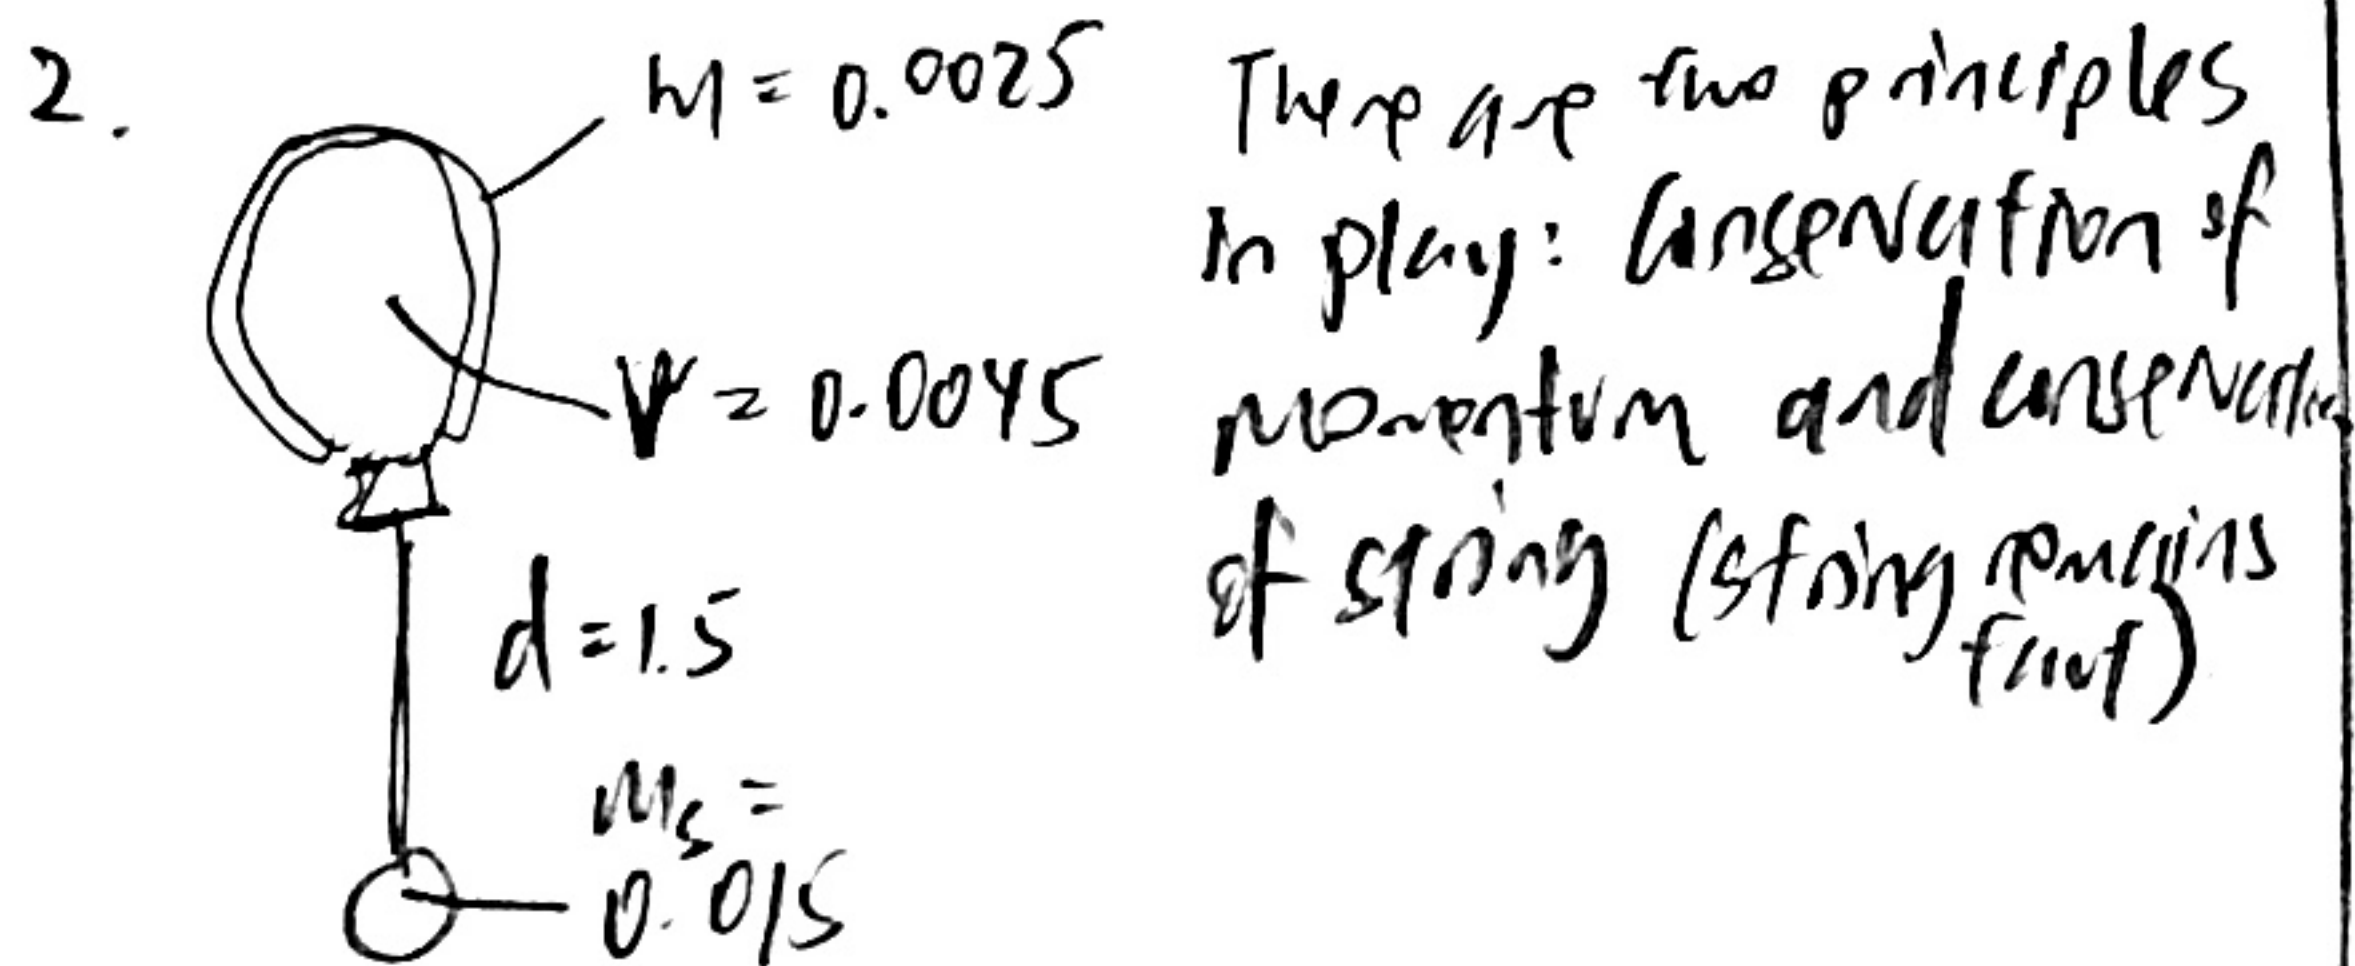 2.
M = 0.0025
V = 0.0045
d = 1.5
Ms =
0.015
There are two principles
in play: Conservation of
momentum and conservation
of string (string remains
taut)